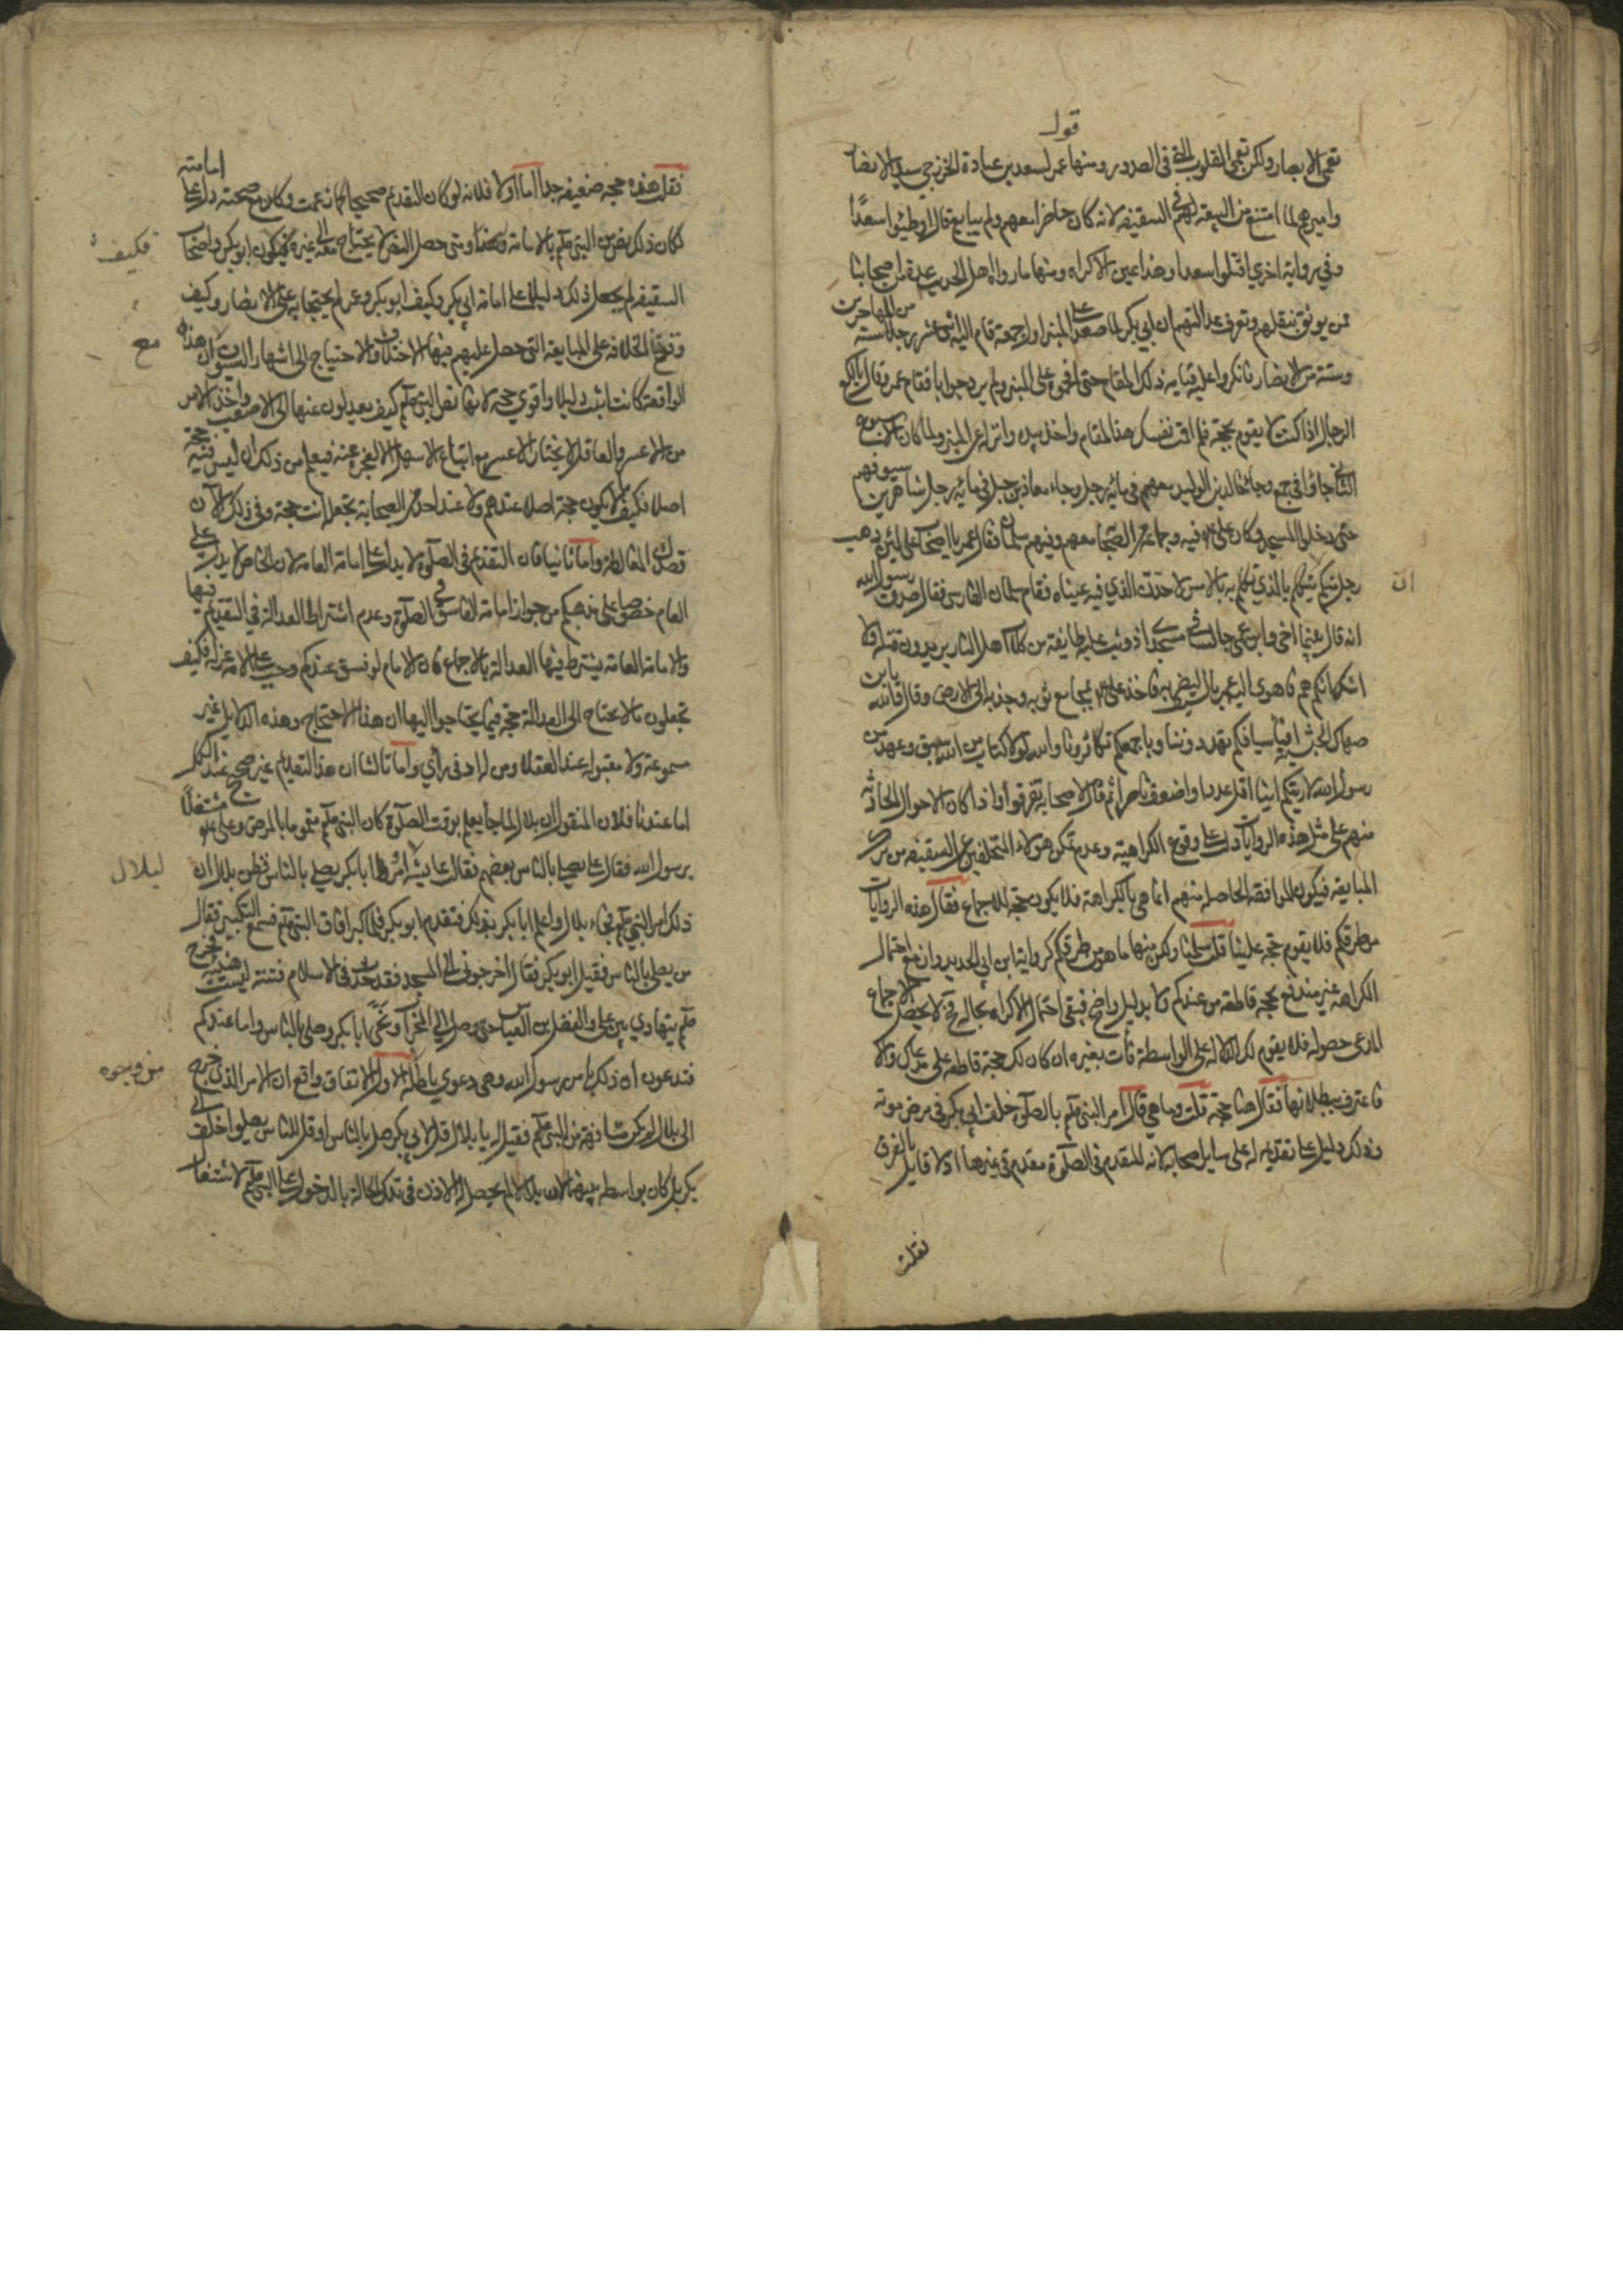 قول
تعمى الابصار ولكن تعمى القلوب التي في الصدور ومنها عمر لسعد بن عبادة الخزرجي سيد الانصار
واميرهم لما امتنع من البيعة لهم في السقيفه لانه كان حاضرا معهم ولم يبايع قال اوطئوا سعدًا
وفي رواية اخري اقتلوا سعدا وهذا عين الاكراه ومنها ما رواه اهل الحديث عدة من اصحابنا
ممن يوثق بنقلهم وتعرف عدالتهم ان ابي بكر لما صعد على المنبر اول جمعة قام اليه اثنى عشر رجلا ستة من المهاجرين
وستة من الانصار فانكروا عليه قيامه ذلك المقام حتى افحموه على المنبر ولم يرد جوابا فقام عمر وقال يالكع
الرجال اذا كنت لا تقوم بحجة فلم اقمت نفسك هذا المقام واخذ بيده وانزله عن المنبر ولما كان الاسبوع
الثاني جاؤا في جمع وجاء خالد بن الوليد معهم في مائة رجل وجاء معاذ بن جبل في مائة رجل شاهرين سيوفهم
حتى دخلوا المسجد وكان علي ع فيه وجماعة من الصحابة معهم وفيهم سلمان فقال عمر يا اصحاب علي لئن ذهب
رجل منكم يتكلم بالذي تكلم به بالامس لاخذت الذي فيه عيناه فقام سلمان الفارسي فقال صدق رسول الله
ان
انه قال بينما اخي وابن عمي جالس في مسجدي اذ وثبت عليه طايفة من كلاب اهل النار يريدون قتله فلا
اشك انكم هم فاهوى اليه عمر بالسيف ليضربه فاخذ علي ع بمجامع ثوبه وجذبه الى الارض وقال يا ابن
صهاك الحبشية افبأسيافكم تهددوننا وباجمعكم تكاثرونا والله لولا كتاب من الله سبق وعهد من
رسول الله لاريتكم اينا اقل عددا واضعف ناصرا ثم قال لاصحابه تفرقوا واذا كان الاحوال الحادثة
منهم على مثل هذه الروايات دل على وقوع الكراهية وعدم تمكن هؤلاء المتخلفين عن السقيفه من ترك
المبايعة فيكون الموافقة الحاصلة منهم انما هي بالكراهة فلا يكون حجة للاجماع فقال هذه الروايات
من طرقكم فلا يقوم حجة علينا قلت سلمنا ولكن منها ما هو من طرقكم كرواية ابن ابي الحديد وان مع احتمال
الكراهة غير مندفع بحجة قاطعة من عندكم ولا بدليل واضح فيبقى احتمال الاكراه بحاله فلا يحصل الاجماع
المدعى حصوله فلا يقوم لك الدلالة على الواسطة فأت بغيره ان كان لك حجة قاطعة على مدعاك والا
فاعترف ببطلانها فقال هنا حجة قلت وما هي قال امر النبي صلعم بالصلوة خلف ابي بكر في مرض موته
وذلك دليل على تقديمه له على ساير اصحابه لانه المقدم في الصلوة مقدم في غيرها اذ لا قايل بالفرق
فقلت
فقلت هذه حجة ضعيفة جدا اما اولا فلانه لو كان التقديم صحيحا كما زعمت وكان مع صحته دالا على امامته
لكان ذلك نص من النبي صلعم بالامامة ومتى حصل النص لا يحتاج معه الى غيره فكيف يكون ابو بكر واصحاب
فكيف
السقيفه لم يجعل ذلك دليلا على امامة ابي بكر وكيف ابو بكر وعمر لم يحتجا به على الانصار وكيف
وقفوا الخلافة على المبايعة التي حصل عليهم فيها الاختلاف والاحتياج الى اشهار السيوف ان هذه
مع
الواقعة كانت اثبت دليلا واقوى حجة لانها نص النبي صلعم كيف يعدلون عنها الى الاصعب واخذ الامر
من الاعسر والعاقل لا يختار الاعسر مع اتباع الاسهل الا لعجزه عنه فيعلم من ذلك ان ليس فيه حجة
اصلا فكيف لا يكون حجة اصلا عندهم ولا عند احد من الصحابة تجعله انت حجة وفي ذلك الان
قصدك المغالطة واما ثانيا فان التقدم في الصلوة لا يدل على امامة العامة لان الخاص لا يدل على
العام خصوصا على مذهبكم من جواز امامة الفاسق في الصلوة وعدم اشتراط العدالة في التقديم فيها
والامامة العامة يشترط فيها العدالة بالاجماع فان الامام لو فسق عندكم وجب على الامة عزله فكيف
تجعلون ما لا يحتاج الى العدالة حجة فيما يحتاجوا اليها ان هذا الاحتجاج وهذه الدلايل غير
مسموعة ولا مقبولة عند العقلاء ومن له ادنى رأي واما ثالثا ان هذا التقديم غير صحيح عند الكل
اما عندنا فلان المنقول ان بلال لما جاء يعلم بوقت الصلوة كان النبي صلعم مغمورا بالمرض وعلي ع مشتغلًا
برسول الله فقال علي يصلي بالناس بعضهم فقالت عايشة امروا ابا بكر يصلي بالناس فظن بلال ان
ليلال
ذلك امر النبي صلعم فجاء بلال واعلم ابا بكر بذلك فتقدم ابو بكر فلما كبر افاق النبي صلعم فسمع التكبير فقال
من يصلي بالناس فقيل ابو بكر فقال اخرجوني الى المسجد فقد حدث في الاسلام فتنة ليست هينة فخرج
صلعم يتهادي بين علي والفضل بن العباس حتى وصل الى المحراب ونحى ابا بكر وصلى بالناس واما عندكم
فتدعون ان ذلك بامر رسول الله وهي دعوي باطلة الاول الاتفاق واقع ان الامر الذي خرج
من وجوه
الى بلال لم يكن مشافهة من النبي صلعم فقيل له يا بلال قل لابي بكر يصل بالناس او قل للناس يصلوا خلف ابي
بكر بل كان بواسطة بينهما لان بلالا لم يحصل له الاذن في تلك الحالة بالدخول على النبي صلعم لاشتغال